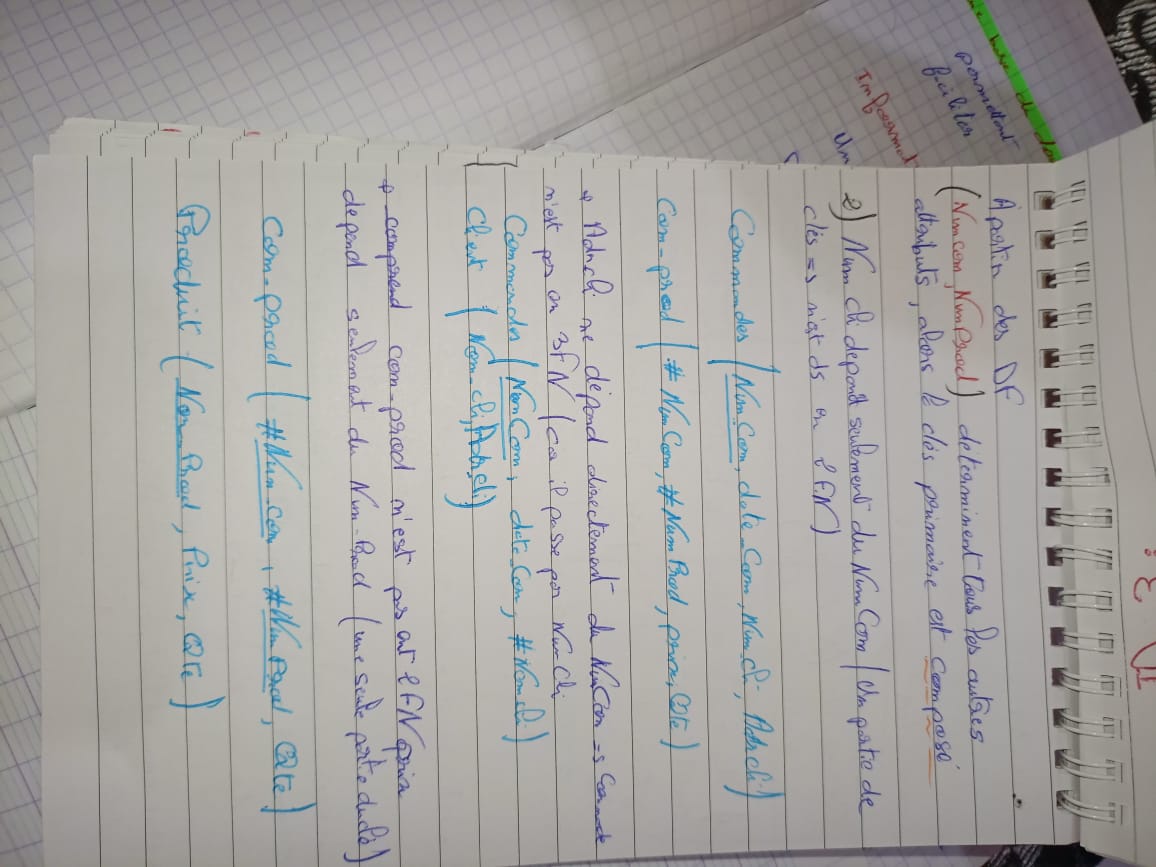 TD 3:
base de do
permettant
faciliter
Informat
Um
A partir des DF
(Numcom, NumProd) determinent tous les autres
attributs, alors le clés primaire est composé
2) Num cli depend seulement du NumCom (Un partie de
clés => n'est ds en 2FN)
Commandes (Num Com, date_Com, Num cli, Adrcli)
Com-prod (# NumCom, #NumProd, prix, Qte)
Adrcli ne dépend directement du NumCom => Commande
n'est pas en 3FN (ca il passe par NumCli
Commandes (NumCom, date Com, #Nomcli)
Client (Nom_cli, Adrcli)
comprend com-prod n'est pas ent 2FN prix
depend seulement du Num-Prod (une seule partie du clé)
Com-prod (#Num_Com, #Num Prod, Qte)
Produit (Nom_Prod, Prix, Qte)